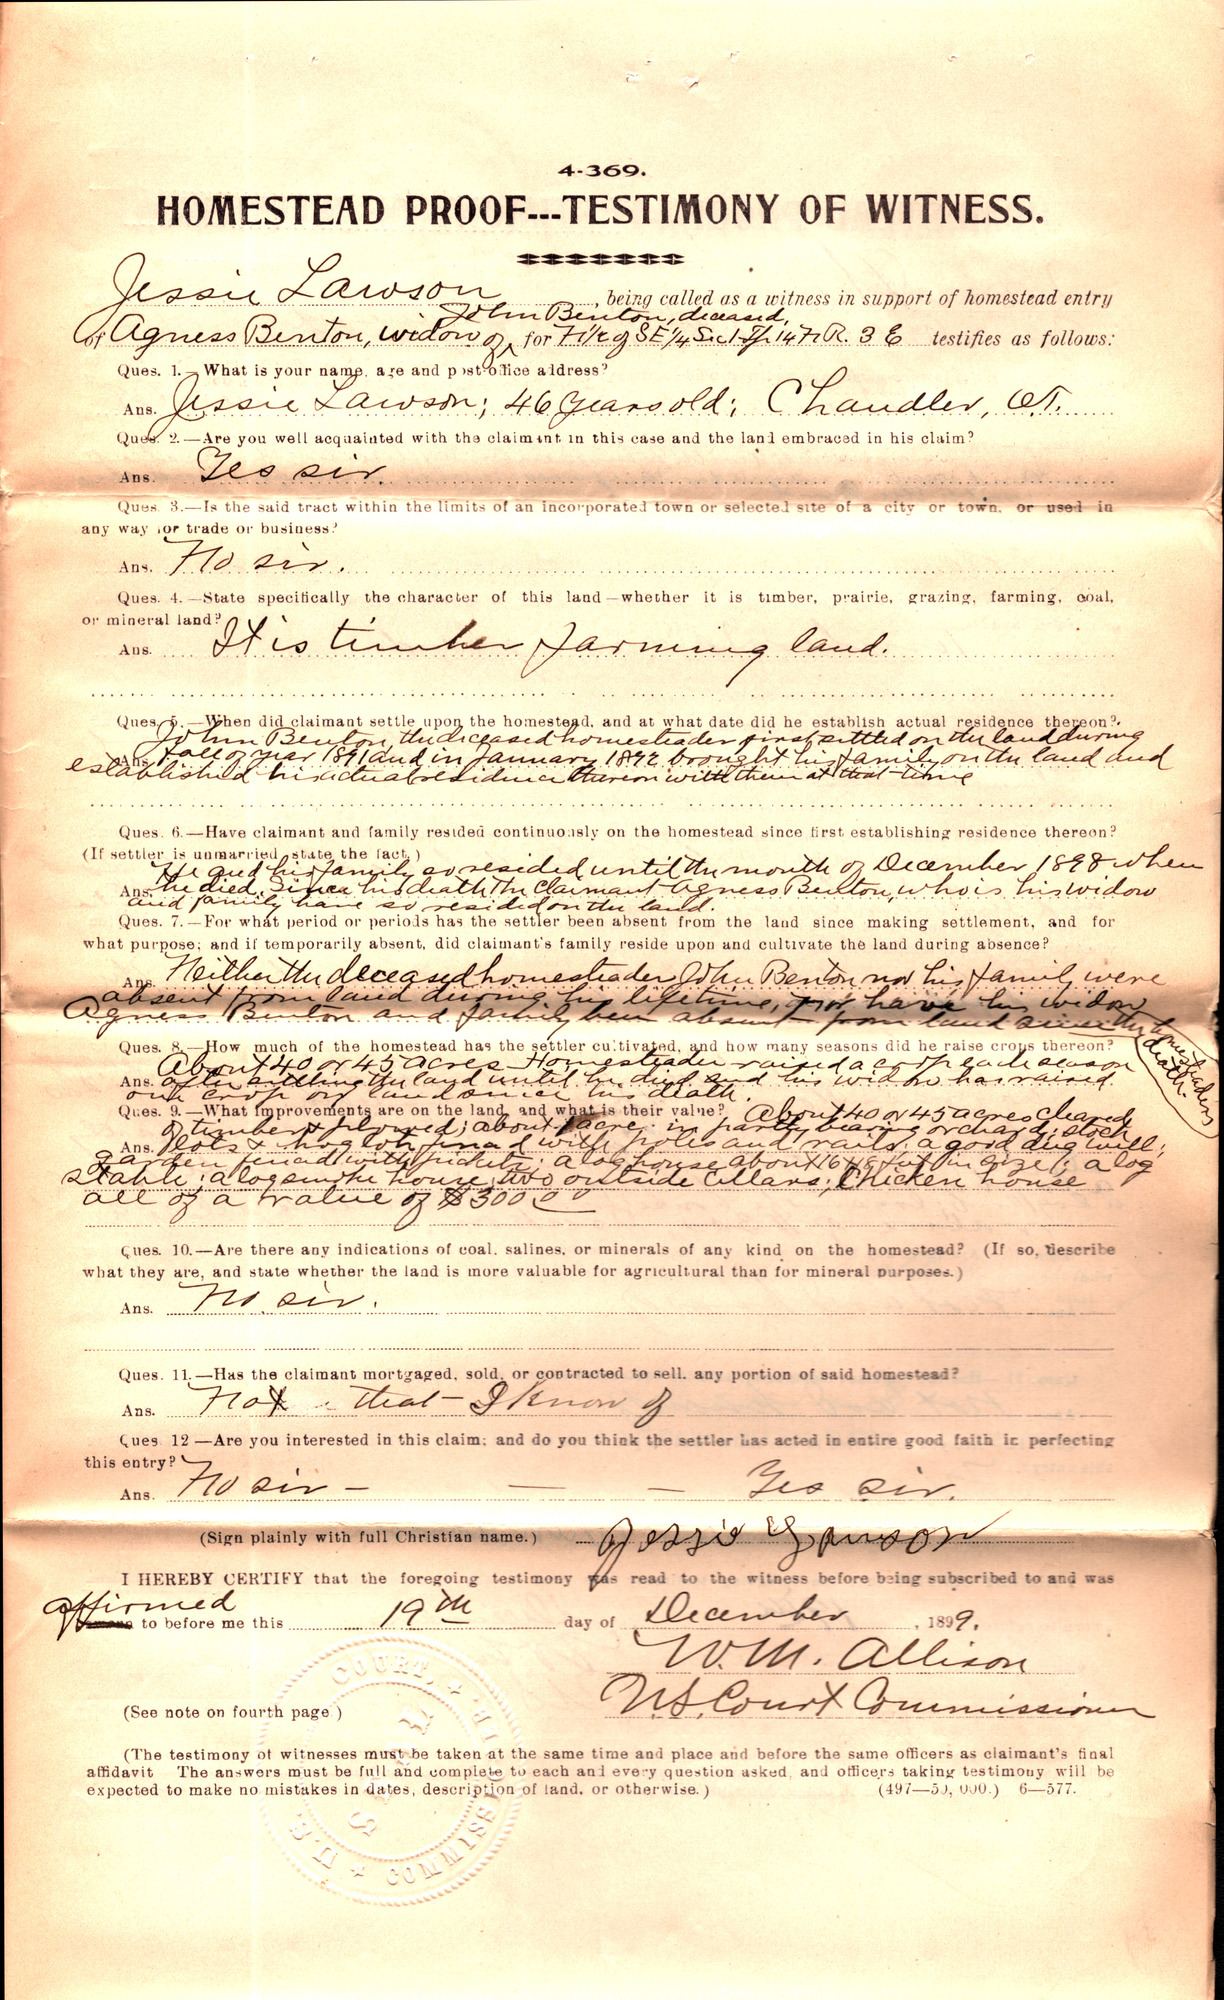 4-369.
HOMESTEAD PROOF---TESTIMONY OF WITNESS.
Jessie Lawson, being called as a witness in support of homestead entry
John Benton, deceased,
of Agness Benton, widow of, for N 1/2 of SE 1/4 Sec 1 Tp 14 N R. 3 E testifies as follows:
Ques. 1.—What is your name, age and post-office address?
Ans. Jessie Lawson; 46 years old; Chandler, O.T.
Ques. 2.—Are you well acquainted with the claimant in this case and the land embraced in his claim?
Ans. Yes sir.
Ques. 3.—Is the said tract within the limits of an incorporated town or selected site of a city or town, or used in
any way for trade or business?
Ans. No sir.
Ques. 4.—State specifically the character of this land—whether it is timber, prairie, grazing, farming, coal,
or mineral land?
Ans. It is timber farming land.
Ques. 5.—When did claimant settle upon the homestead, and at what date did he establish actual residence thereon?
John Benton, the deceased homesteader first settled on the land during
Ans. fall of year 1891 and in January 1892 brought his family on the land and
established his actual residence thereon with them at that time
Ques. 6.—Have claimant and family resided continuously on the homestead since first establishing residence thereon?
(If settler is unmarried, state the fact.)
He and his family so resided until the month of December 1898 when
Ans. he died. Since his death the claimant Agness Benton, who is his widow
and family have so resided on the land.
Ques. 7.—For what period or periods has the settler been absent from the land since making settlement, and for
what purpose; and if temporarily absent, did claimant's family reside upon and cultivate the land during absence?
Ans. Neither the deceased homesteader John Benton nor his family were
absent from land during his lifetime, nor have his widow
Agness Benton and family been absent from land since the homesteaders
death.
Ques. 8.—How much of the homestead has the settler cultivated, and how many seasons did he raise crops thereon?
About 40 or 45 acres. Homesteader raised a crop each season
Ans. after settling the land until he died and his widow has raised
one crop on land since his death.
Ques. 9.—What improvements are on the land, and what is their value? About 40 or 45 acres cleared
of timber & plowed; about 1 acre in partly bearing orchard; stock
Ans. lots & hog lots fenced with poles and rails; a good dug well;
garden fenced with pickets; a log house about 16x18 feet in size; a log
stable; a log smoke house; two outside cellars; Chicken house
all of a value of $300 00
Ques. 10.—Are there any indications of coal, salines, or minerals of any kind on the homestead? (If so, describe
what they are, and state whether the land is more valuable for agricultural than for mineral purposes.)
Ans. No. sir.
Ques. 11.—Has the claimant mortgaged, sold, or contracted to sell, any portion of said homestead?
Ans. Not that I know of
Ques. 12—Are you interested in this claim; and do you think the settler has acted in entire good faith in perfecting
this entry?
Ans. No sir — — — Yes sir.
(Sign plainly with full Christian name.) Jessie Lawson
I HEREBY CERTIFY that the foregoing testimony was read to the witness before being subscribed to and was
affirmed
to before me this 19th day of December, 1899.
W. M. Allison
U.S. Court Commissioner
(See note on fourth page)
(The testimony of witnesses must be taken at the same time and place and before the same officers as claimant's final
affidavit The answers must be full and complete to each and every question asked, and officers taking testimony will be
expected to make no mistakes in dates, description of land, or otherwise.) (497—50, 000.) 6—577.
U.S. COURT COMMISSIONER
SEAL